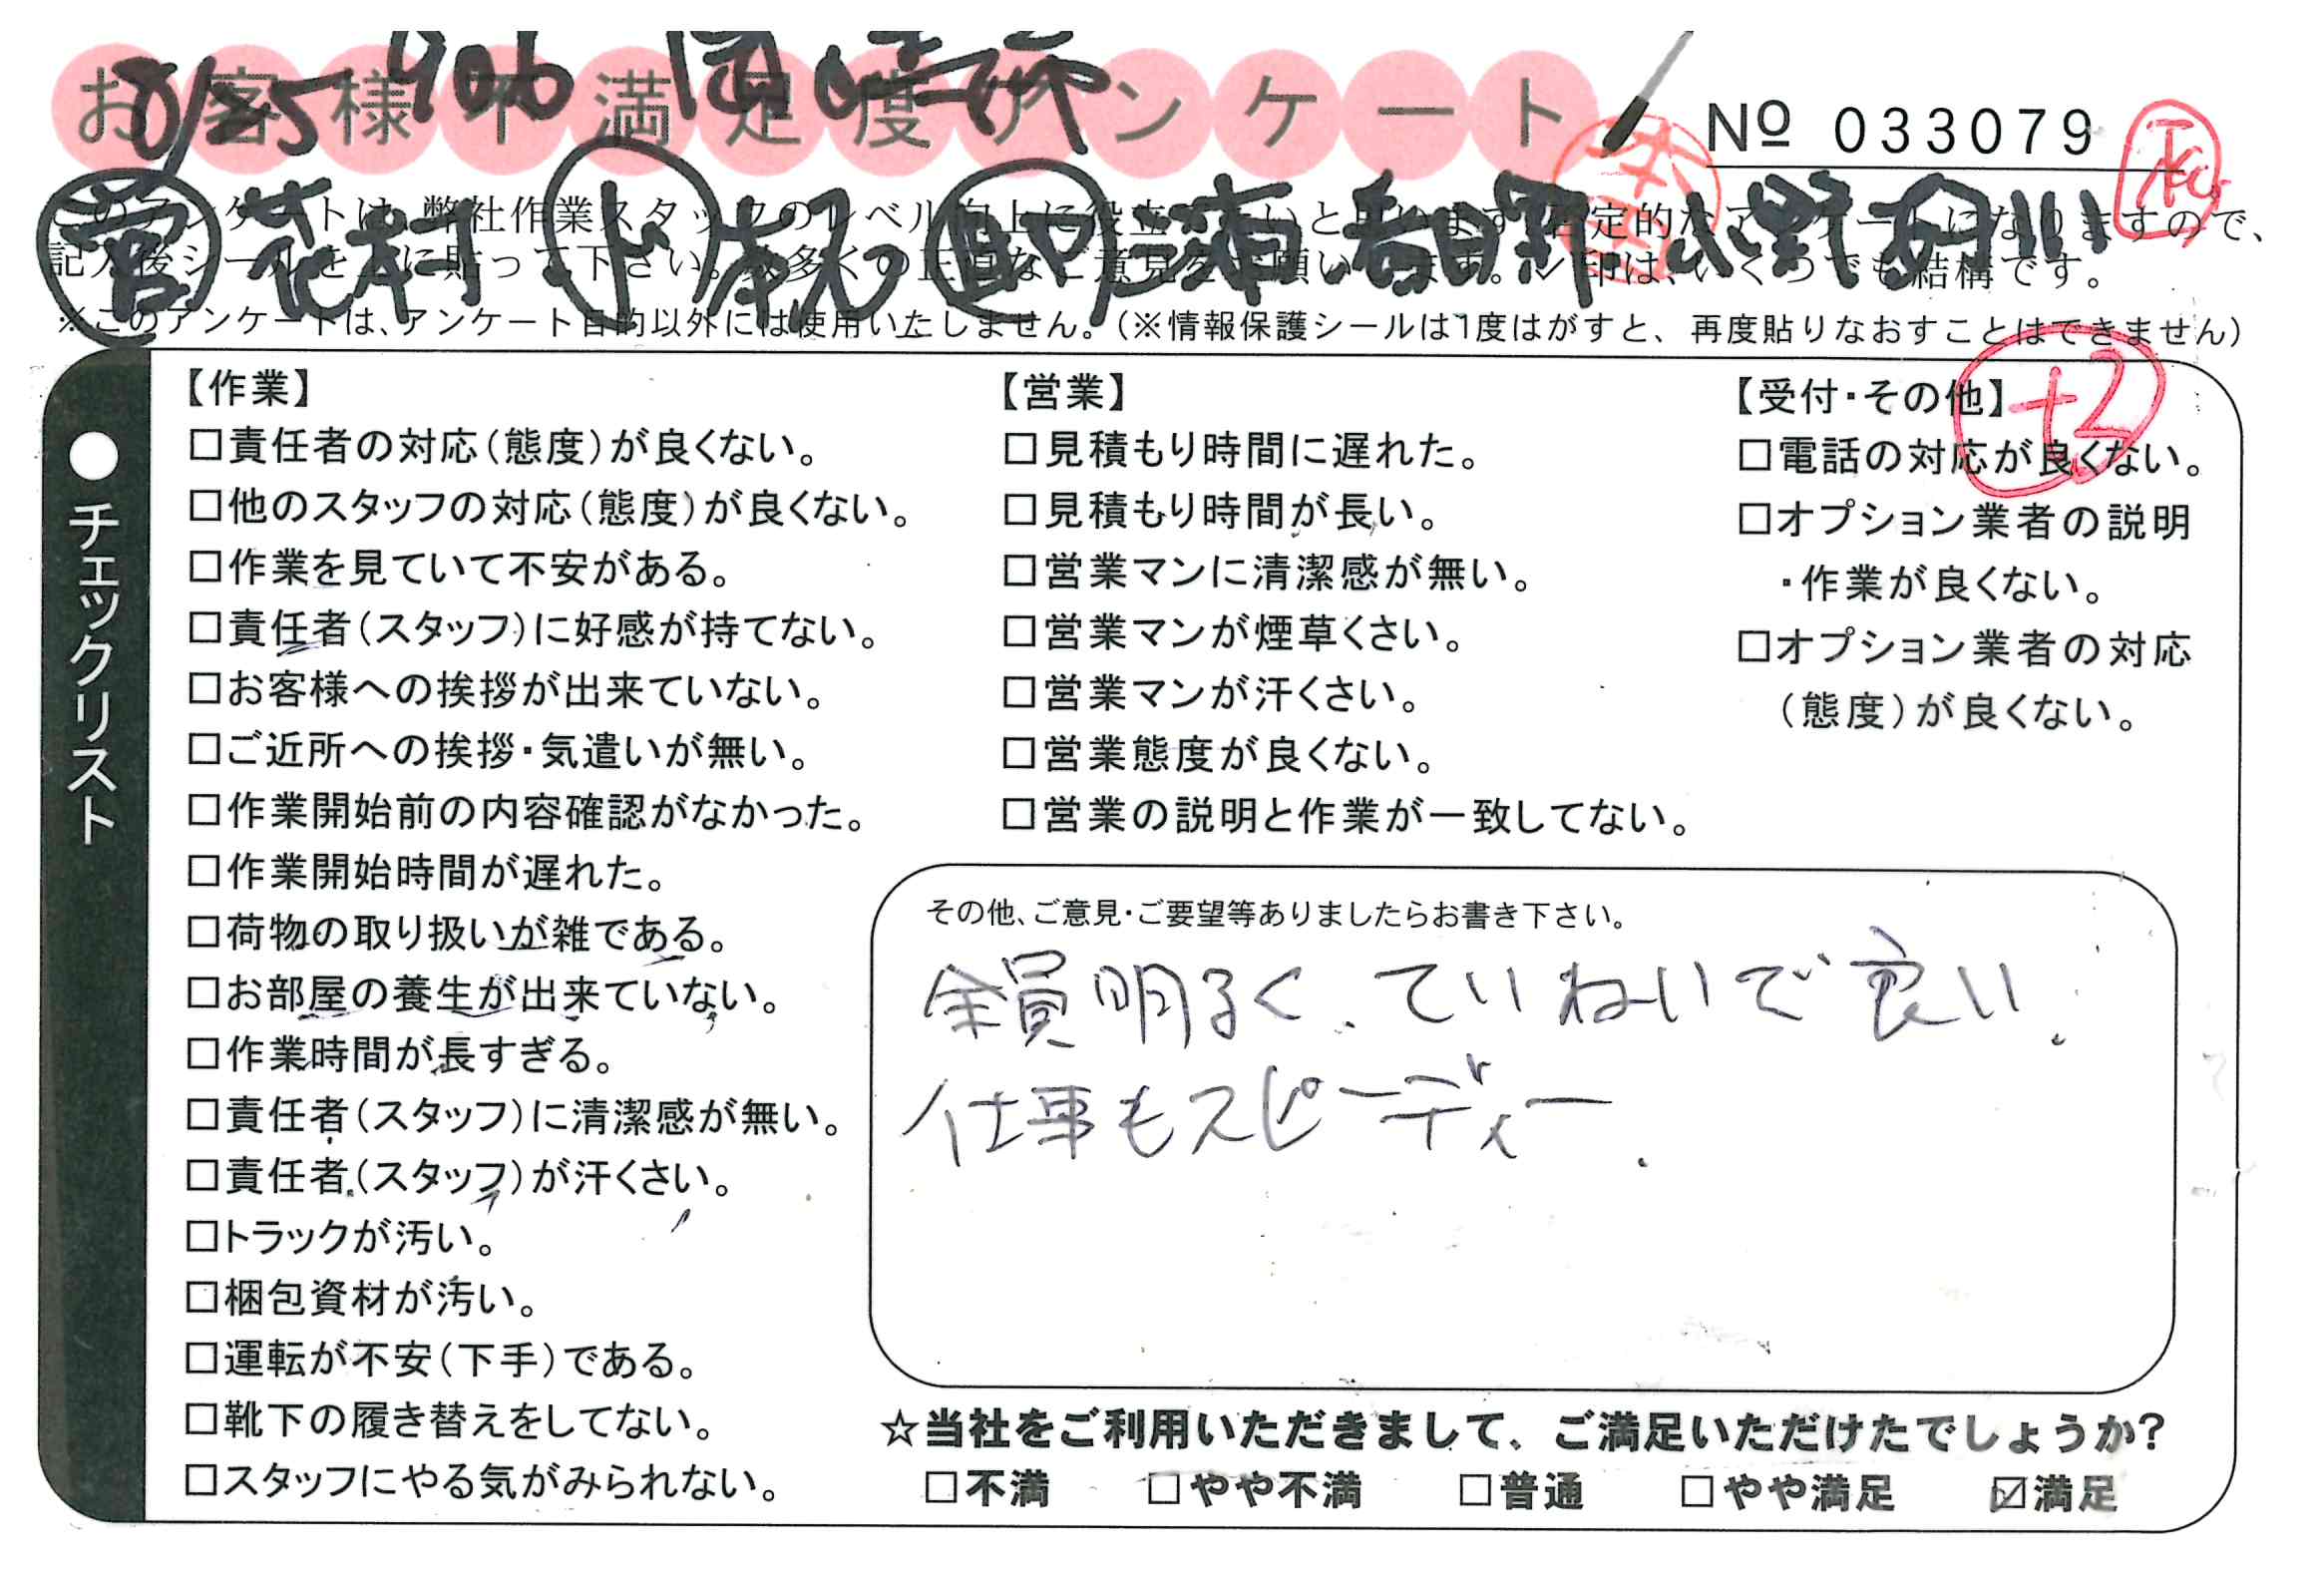 お客様不満足度アンケート
№ 033079
このアンケートは、弊社作業スタッフのレベル向上に役立
否定的なアンケートになりますので、
記入後シールを上に貼って下さい。
※このアンケートは、アンケート目的以外には使用いたしません。(※情報保護シールは1度はがすと、再度貼りなおすことはできません)
●チェックリスト
【作業】
□責任者の対応(態度)が良くない。
□他のスタッフの対応(態度)が良くない。
□作業を見ていて不安がある。
□責任者(スタッフ)に好感が持てない。
□お客様への挨拶が出来ていない。
□ご近所への挨拶・気遣いが無い。
□作業開始前の内容確認がなかった。
□作業開始時間が遅れた。
□荷物の取り扱いが雑である。
□お部屋の養生が出来ていない。
□作業時間が長すぎる。
□責任者(スタッフ)に清潔感が無い。
□責任者(スタッフ)が汗くさい。
□トラックが汚い。
□梱包資材が汚い。
□運転が不安(下手)である。
□靴下の履き替えをしてない。
□スタッフにやる気がみられない。
【営業】
□見積もり時間に遅れた。
□見積もり時間が長い。
□営業マンに清潔感が無い。
□営業マンが煙草くさい。
□営業マンが汗くさい。
□営業態度が良くない。
□営業の説明と作業が一致してない。
【受付・その他】
+2
□電話の対応が良くない。
□オプション業者の説明
・作業が良くない。
□オプション業者の対応
(態度)が良くない。
その他、ご意見・ご要望等ありましたらお書き下さい。
全員明るく、ていねいで良い.
仕事もスピーディー.
☆当社をご利用いただきまして、ご満足いただけたでしょうか?
□不満 □やや不満 □普通 □やや満足 ☑満足